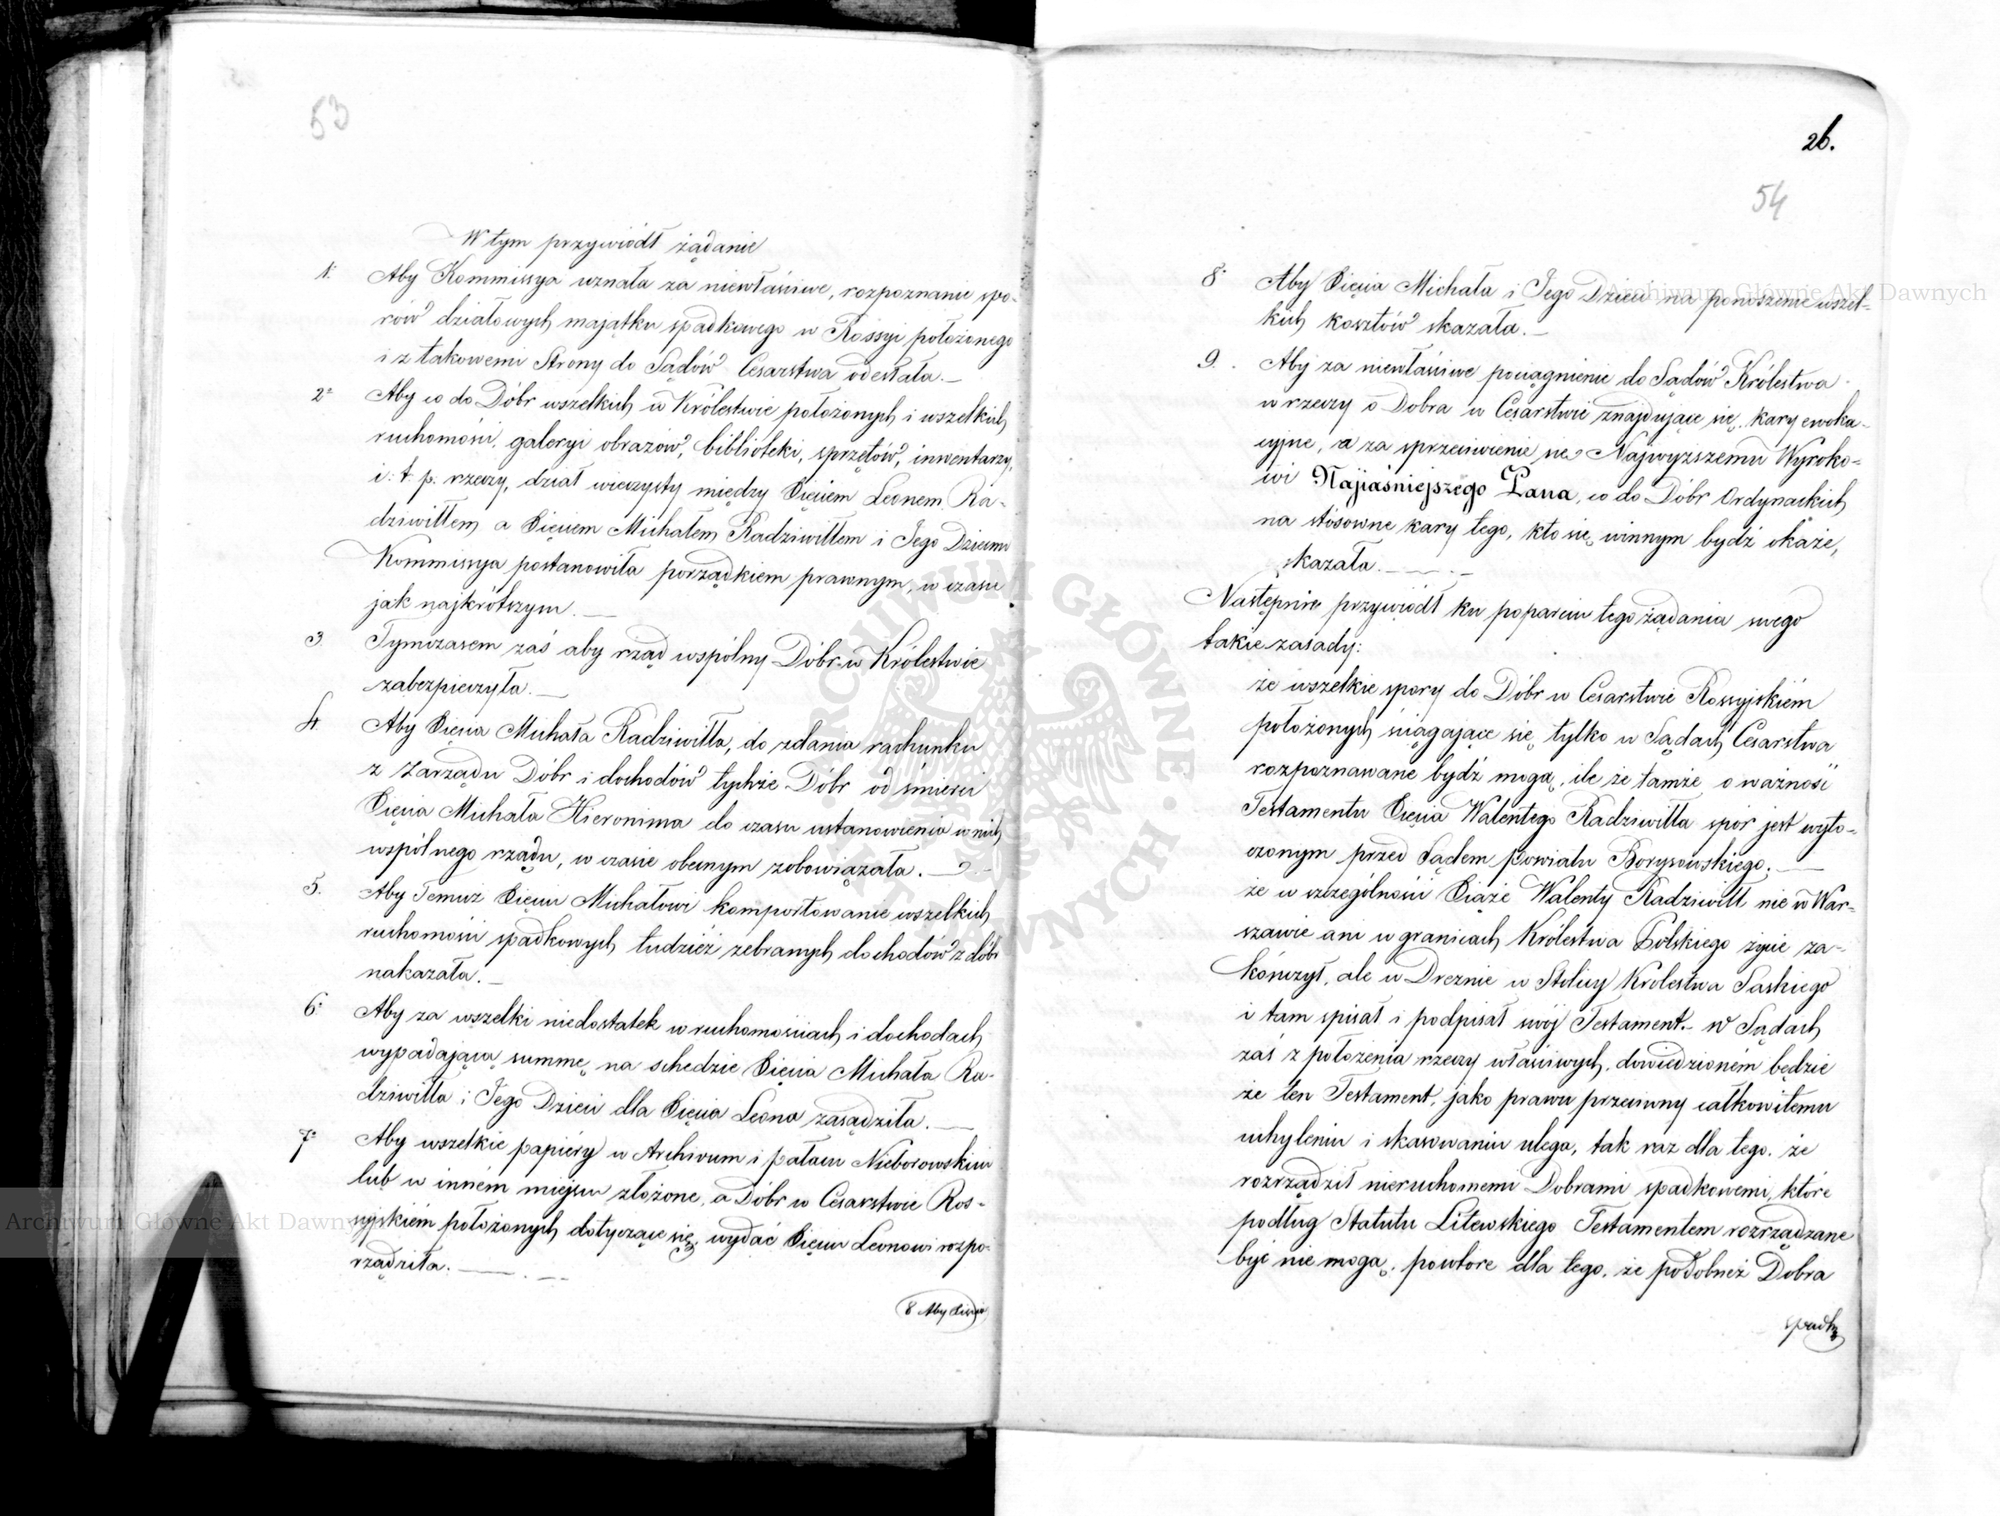 53
W tym przywiódł żądanie
1. Aby Kommissya uznała za niewłaściwe, rozpoznanie spo-
rów działowych majątku spadkowego w Rossyi położonego
i z takowemi Strony do Sądów Cesarstwa odesłała.—
2. Aby co do Dóbr wszelkich w Królestwie położonych i wszelkich
ruchomości, galeryi obrazów, biblioteki, sprzętów, inwentarzy,
i: t: p: rzeczy, dział wieczysty między Xięciem Leonem Ra-
dziwiłłem a Xięciem Michałem Radziwiłłem i Jego Dziećmi
Kommissya postanowiła porządkiem prawnym, w czasie
jak najkrótszym.—
3. Tymczasem zaś aby rząd wspólny Dóbr w Królestwie
zabezpieczyła.—
4. Aby Xięcia Michała Radziwiłła, do zdania rachunku
z Zarządu Dóbr i dochodów tychże Dóbr od śmierci
Xięcia Michała Hieronima do czasu ustanowienia w nich
wspólnego rządu, w czasie obecnym zobowiązała.—
5. Aby Temuż Xięciu Michałowi komportowanie wszelkich
ruchomości spadkowych tudzież zebranych dochodów z dóbr
nakazała.—
6. Aby za wszelki niedostatek w ruchomościach i dochodach
wypadającą summę na schedzie Xięcia Michała Ra-
dziwiłła i Jego Dzieci dla Xięcia Leona zasądziła.—
7. Aby wszelkie papiéry w Archivum i pałacu Nieborowskim
lub w inném miejscu złożone, a Dóbr w Cesarstwie Ros-
syjskiém położonych dotyczące się, wydać Xięciu Leonowi rozpo-
rządziła.—
8 Aby Xięcia
26.
54
8. Aby Xięcia Michała i Jego Dzieci na ponoszenie wszel-
kich kosztów skazała.—
9. Aby za niewłaściwe pociągnienie do Sądów Królestwa
w rzeczy o Dobra w Cesarstwie znajdujące się, kary ewoka-
cyjne, a za sprzeciwienie się Najwyższemu Wyroko-
wi Najjaśniejszego Pana, co do Dóbr Ordynackich
na stosowne kary tego, kto się winnym bydź okaże,
skazała.—
Następnie przywiódł ku poparciu tego żądania swego
takie zasady:
że wszelkie spory do Dóbr w Cesarstwie Rossyjskiém
położonych ściągające się tylko w Sądach Cesarstwa
rozpoznawane bydź mogą, ile że tamże o ważność
Testamentu Xięcia Walentego Radziwiłła spór jest wyto-
czonym przed Sądem powiatu Borysowskiego.—
że w szczególności Xiążę Walenty Radziwiłł nie w War-
szawie ani w granicach Królestwa Polskiego życie za-
kończył, ale w Dreznie w Stolicy Królestwa Saskiego
i tam spisał i podpisał swój Testament.- W Sądach
zaś z położenia rzeczy właściwych, dowiedzioném będzie
że ten Testament, jako prawu przeciwny całkowitemu
uchyleniu i skasowaniu ulega, tak raz dla tego, że
rozrządził nieruchomemi Dobrami spadkowemi, które
podług Statutu Litewskiego Testamentem rozrządzane
być nie mogą, powtóre dla tego, że podobnież Dobra
spadk
Archiwum Główne Akt Dawnych
Archiwum Główne Akt Dawnych
ARCHIWUM GŁÓWNE AKT DAWNYCH